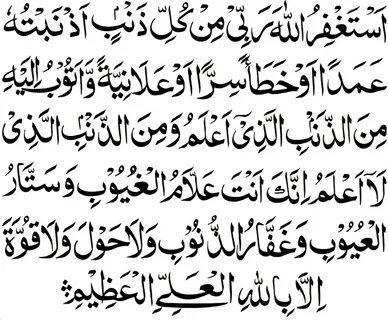 اَسْتَغْفِرُ اللهَ رَبِّىْ مِنْ كُلِّ ذَنْۢبٍ اَذْنَبْتُهٗ
عَمَدًا اَوْ خَطَأً سِرًّا اَوْ عَلَانِيَةً وَّاَتُوْبُ اِلَيْهِ
مِنَ الذَّنْۢبِ الَّذِىْٓ اَعْلَمُ وَمِنَ الذَّنْۢبِ الَّذِىْ
لَآ اَعْلَمُ اِنَّكَ اَنْتَ عَلَّامُ الْغُيُوْبِ وَسَتَّارُ
الْعُيُوْبِ وَغَفَّارُ الذُّنُوْبِ وَلَا حَوْلَ وَلَا قُوَّةَ
اِلَّا بِاللهِ الْعَلِىِّ الْعَظِيْمِ